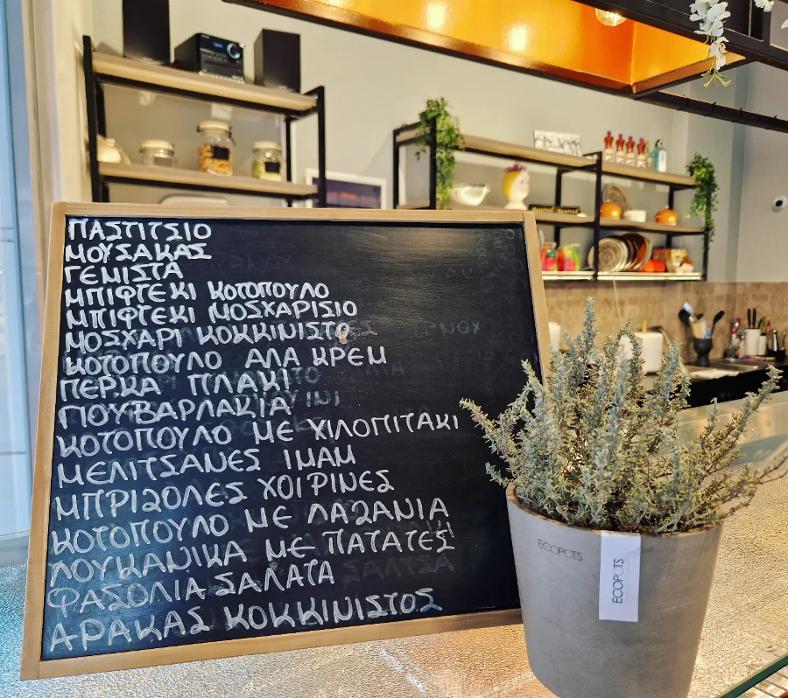 ΠΑΣΤΙΤΣΙΟ
ΜΟΥΣΑΚΑΣ
ΓΕΜΙΣΤΑ
ΜΠΙΦΤΕΚΙ ΚΟΤΟΠΟΥΛΟ
ΜΠΙΦΤΕΚΙ ΜΟΣΧΑΡΙΣΙΟ
ΜΟΣΧΑΡΙ ΚΟΚΚΙΝΙΣΤΟ
ΚΟΤΟΠΟΥΛΟ ΑΛΑ ΚΡΕΜ
ΠΕΡΚΑ ΠΛΑΚΙ
ΓΙΟΥΒΑΡΛΑΚΙΑ
ΚΟΤΟΠΟΥΛΟ ΜΕ ΧΙΛΟΠΙΤΑΚΙ
ΜΕΛΙΤΣΑΝΕΣ ΙΜΑΜ
ΜΠΡΙΖΟΛΕΣ ΧΟΙΡΙΝΕΣ
ΚΟΤΟΠΟΥΛΟ ΜΕ ΛΑΖΑΝΙΑ
ΛΟΥΚΑΝΙΚΑ ΜΕ ΠΑΤΑΤΕΣ
ΦΑΣΟΛΙΑ ΣΑΛΑΤΑ
ΑΡΑΚΑΣ ΚΟΚΚΙΝΙΣΤΟΣ
ECOPOTS
ECOPOTS